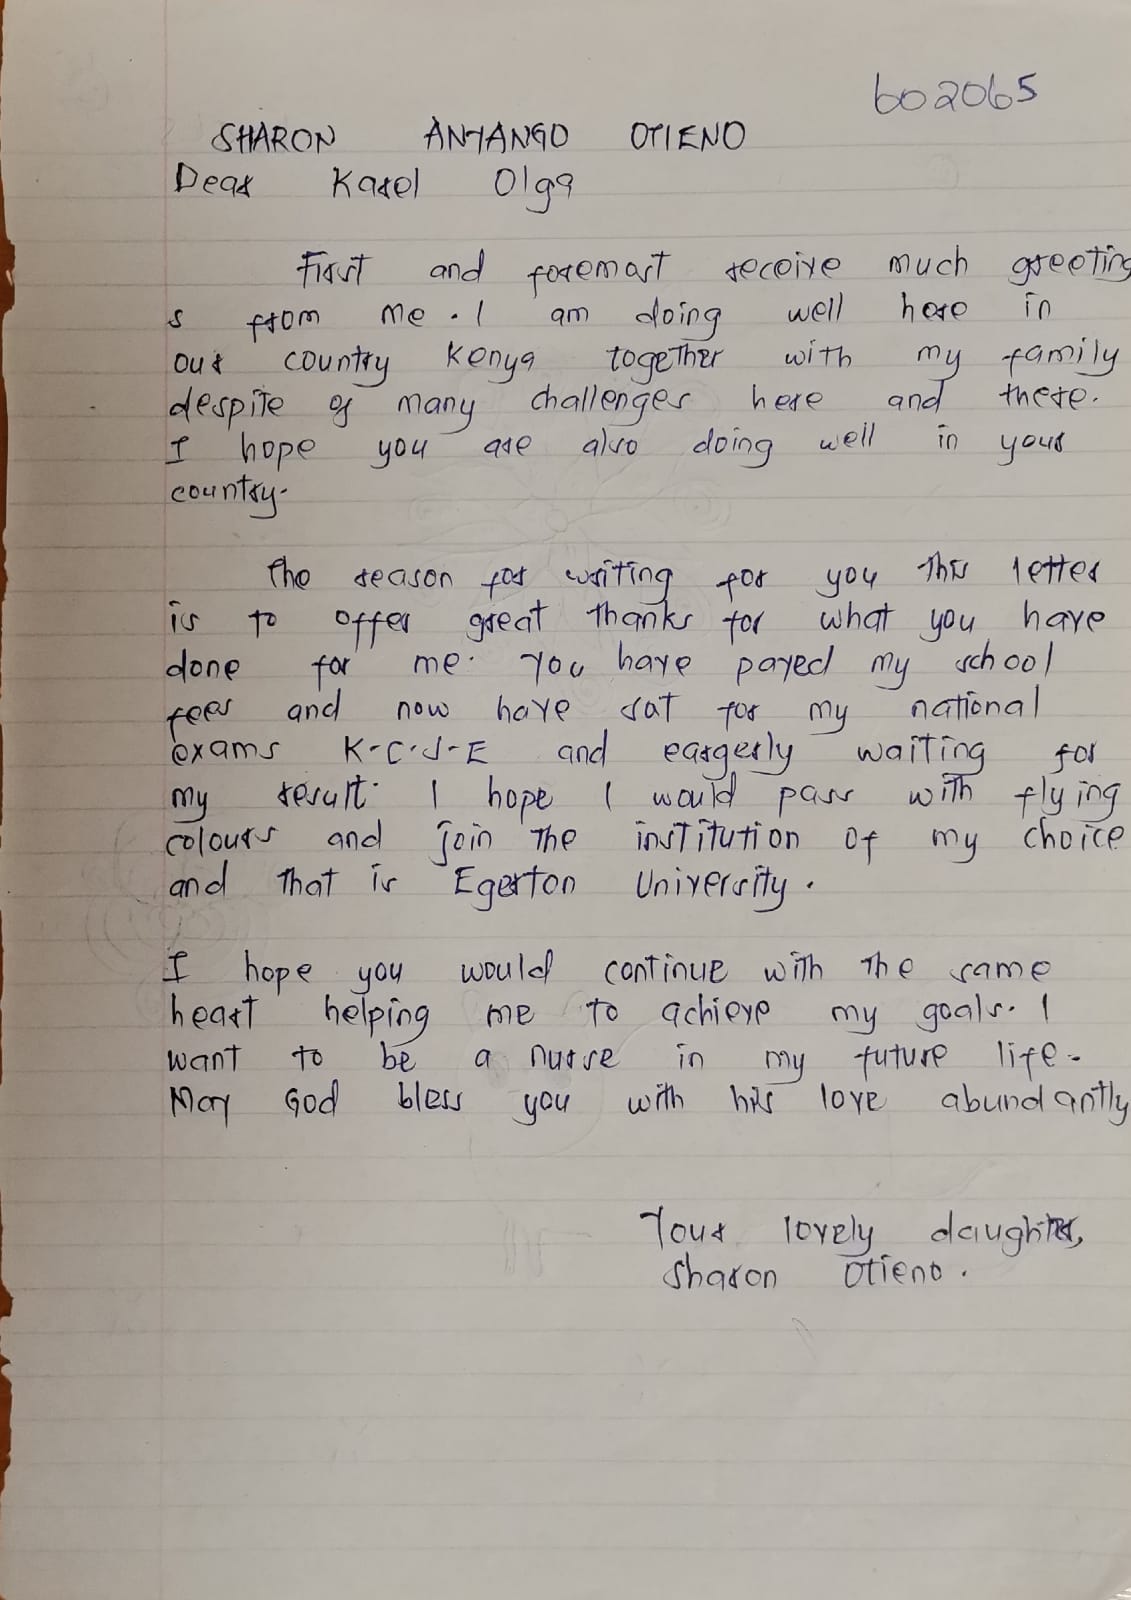 602065
SHARON ANYANGO OTIENO
Dear Karel Olga
First and foremost receive much greeting
s from me. I am doing well here in
our country Kenya together with my family
despite of many challenges here and there.
I hope you are also doing well in your
country.
The reason for writing for you this letter
is to offer great thanks for what you have
done for me. You have payed my school
fees and now have sat for my national
exams K-C-S-E and eargerly waiting for
my result. I hope I would pass with flying
colours and join the institution of my choice
and that is Egerton University.
I hope you would continue with the same
heart helping me to achieve my goals. I
want to be a nurse in my future life.
May God bless you with his love abundantly
Your lovely daughter,
Sharon Otieno.